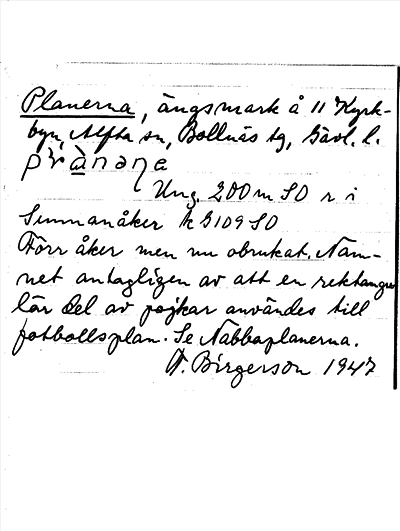 Planerna, ängsmark å 11 Kyrk-
byn, Alfta sn, Bollnäs tg, Gävl. l.
Ung. 200 m SO r i
Simmanåker k G109 SO
Förr åker men nu obrukat. Nam-
net antagligen av att en rektangu
lär del av pojkar användes till
fotbollsplan. Se Nabbaplanerna.
F. Birgerson 1947